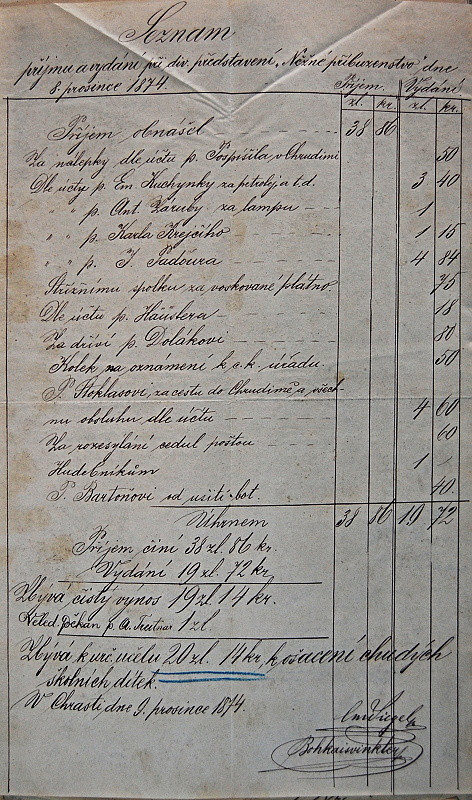 Seznam
příjmu a vydání při div. představení „Něžné příbuzenstvo" dne
8. prosince 1874.
Příjem. Vydání
zl. kr. zl. kr.
Příjem obnášel 38 86
Za nálepky dle účtu p. Pospíšila v Chrudimi 50
Dle účtu p. Em. Kuchynky za petrolej a t.d. 3 40
" " p. Ant. Záruby za lampu 1 -
" " p. Karla Krejčího 1 15
" " p. J. Paďoura 4 84
Stříznímu spolku za voskované plátno 75
Dle účtu p. Häuslera 18
Za dříví p. Dolákovi 80
Kolek na oznámení k c.k. úřadu. 50
P. Stoklasovi, za cestu do Chrudimě a všech-
nu obsluhu dle účtu 4 60
Za rozesýlání cedul poštou 60
Hudebníkům 1 -
P. Bartoňovi od ušití bot. 40
Úhrnem 38 86 19 72
Příjem činí 38 zl. 86 kr.
Vydání 19 zl. 72 kr.
Zbývá čistý výnos 19 zl 14 kr.
p. A. Treitnar 1 zl.
Zbývá k urč. účelu 20 zl. 14 kr, k ošacení chudých
školních dítek.
V Chrasti, dne 9. prosince 1874.